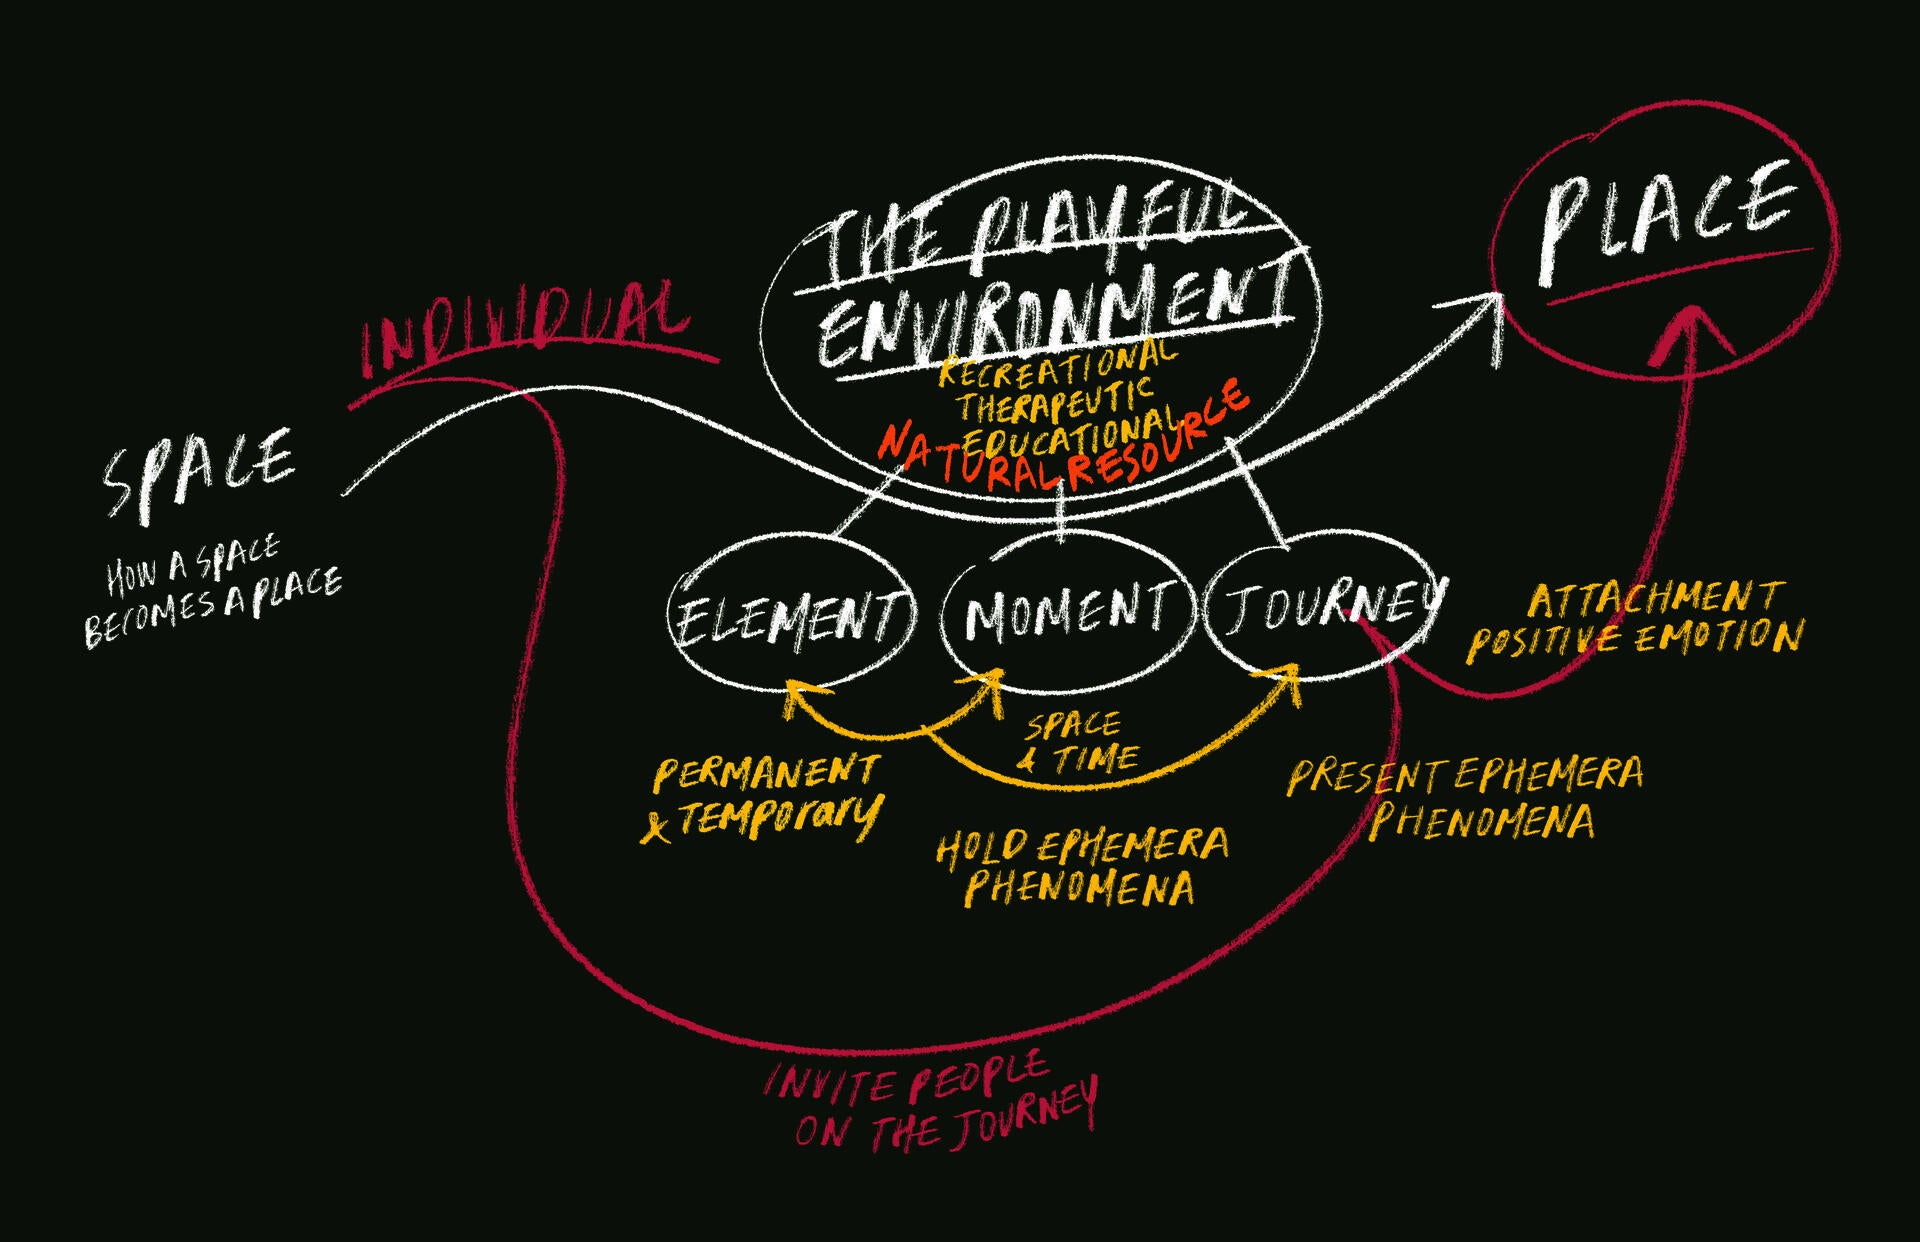 INDIVIDUAL
SPACE
HOW A SPACE
BECOMES A PLACE
THE PLAYFUL
ENVIRONMENT
RECREATIONAL
THERAPEUTIC
EDUCATIONAL
NATURAL RESOURCE
PLACE
ELEMENT
MOMENT
JOURNEY
ATTACHMENT
POSITIVE EMOTION
SPACE
& TIME
PERMANENT
& TEMPOrary
HOLD EPHEMERA
PHENOMENA
PRESENT EPHEMERA
PHENOMENA
INVITE PEOPLE
ON THE JOURNEY